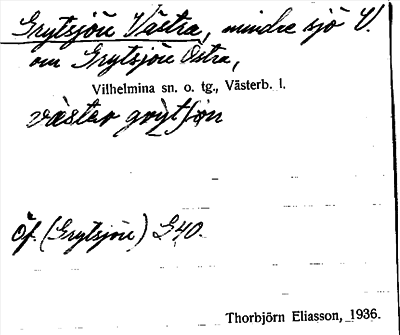 Grytsjön Västra, mindre sjö V.
om Grytsjön Östra,
Vilhelmina sn. o. tg., Västerb. l.
väster grytsjön
Öf. (Grytsjön) S40.
Thorbjörn Eliasson, 1936.